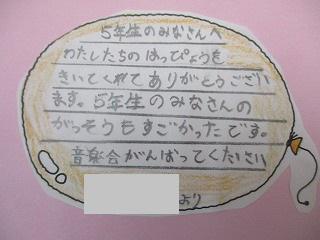 5年生のみなさんへ
わたしたちのはっぴょうを
きいてくれてありがとうござい
ます。5年生のみなさんの
がっそうもすごかったです。
音楽会がんばってください
より